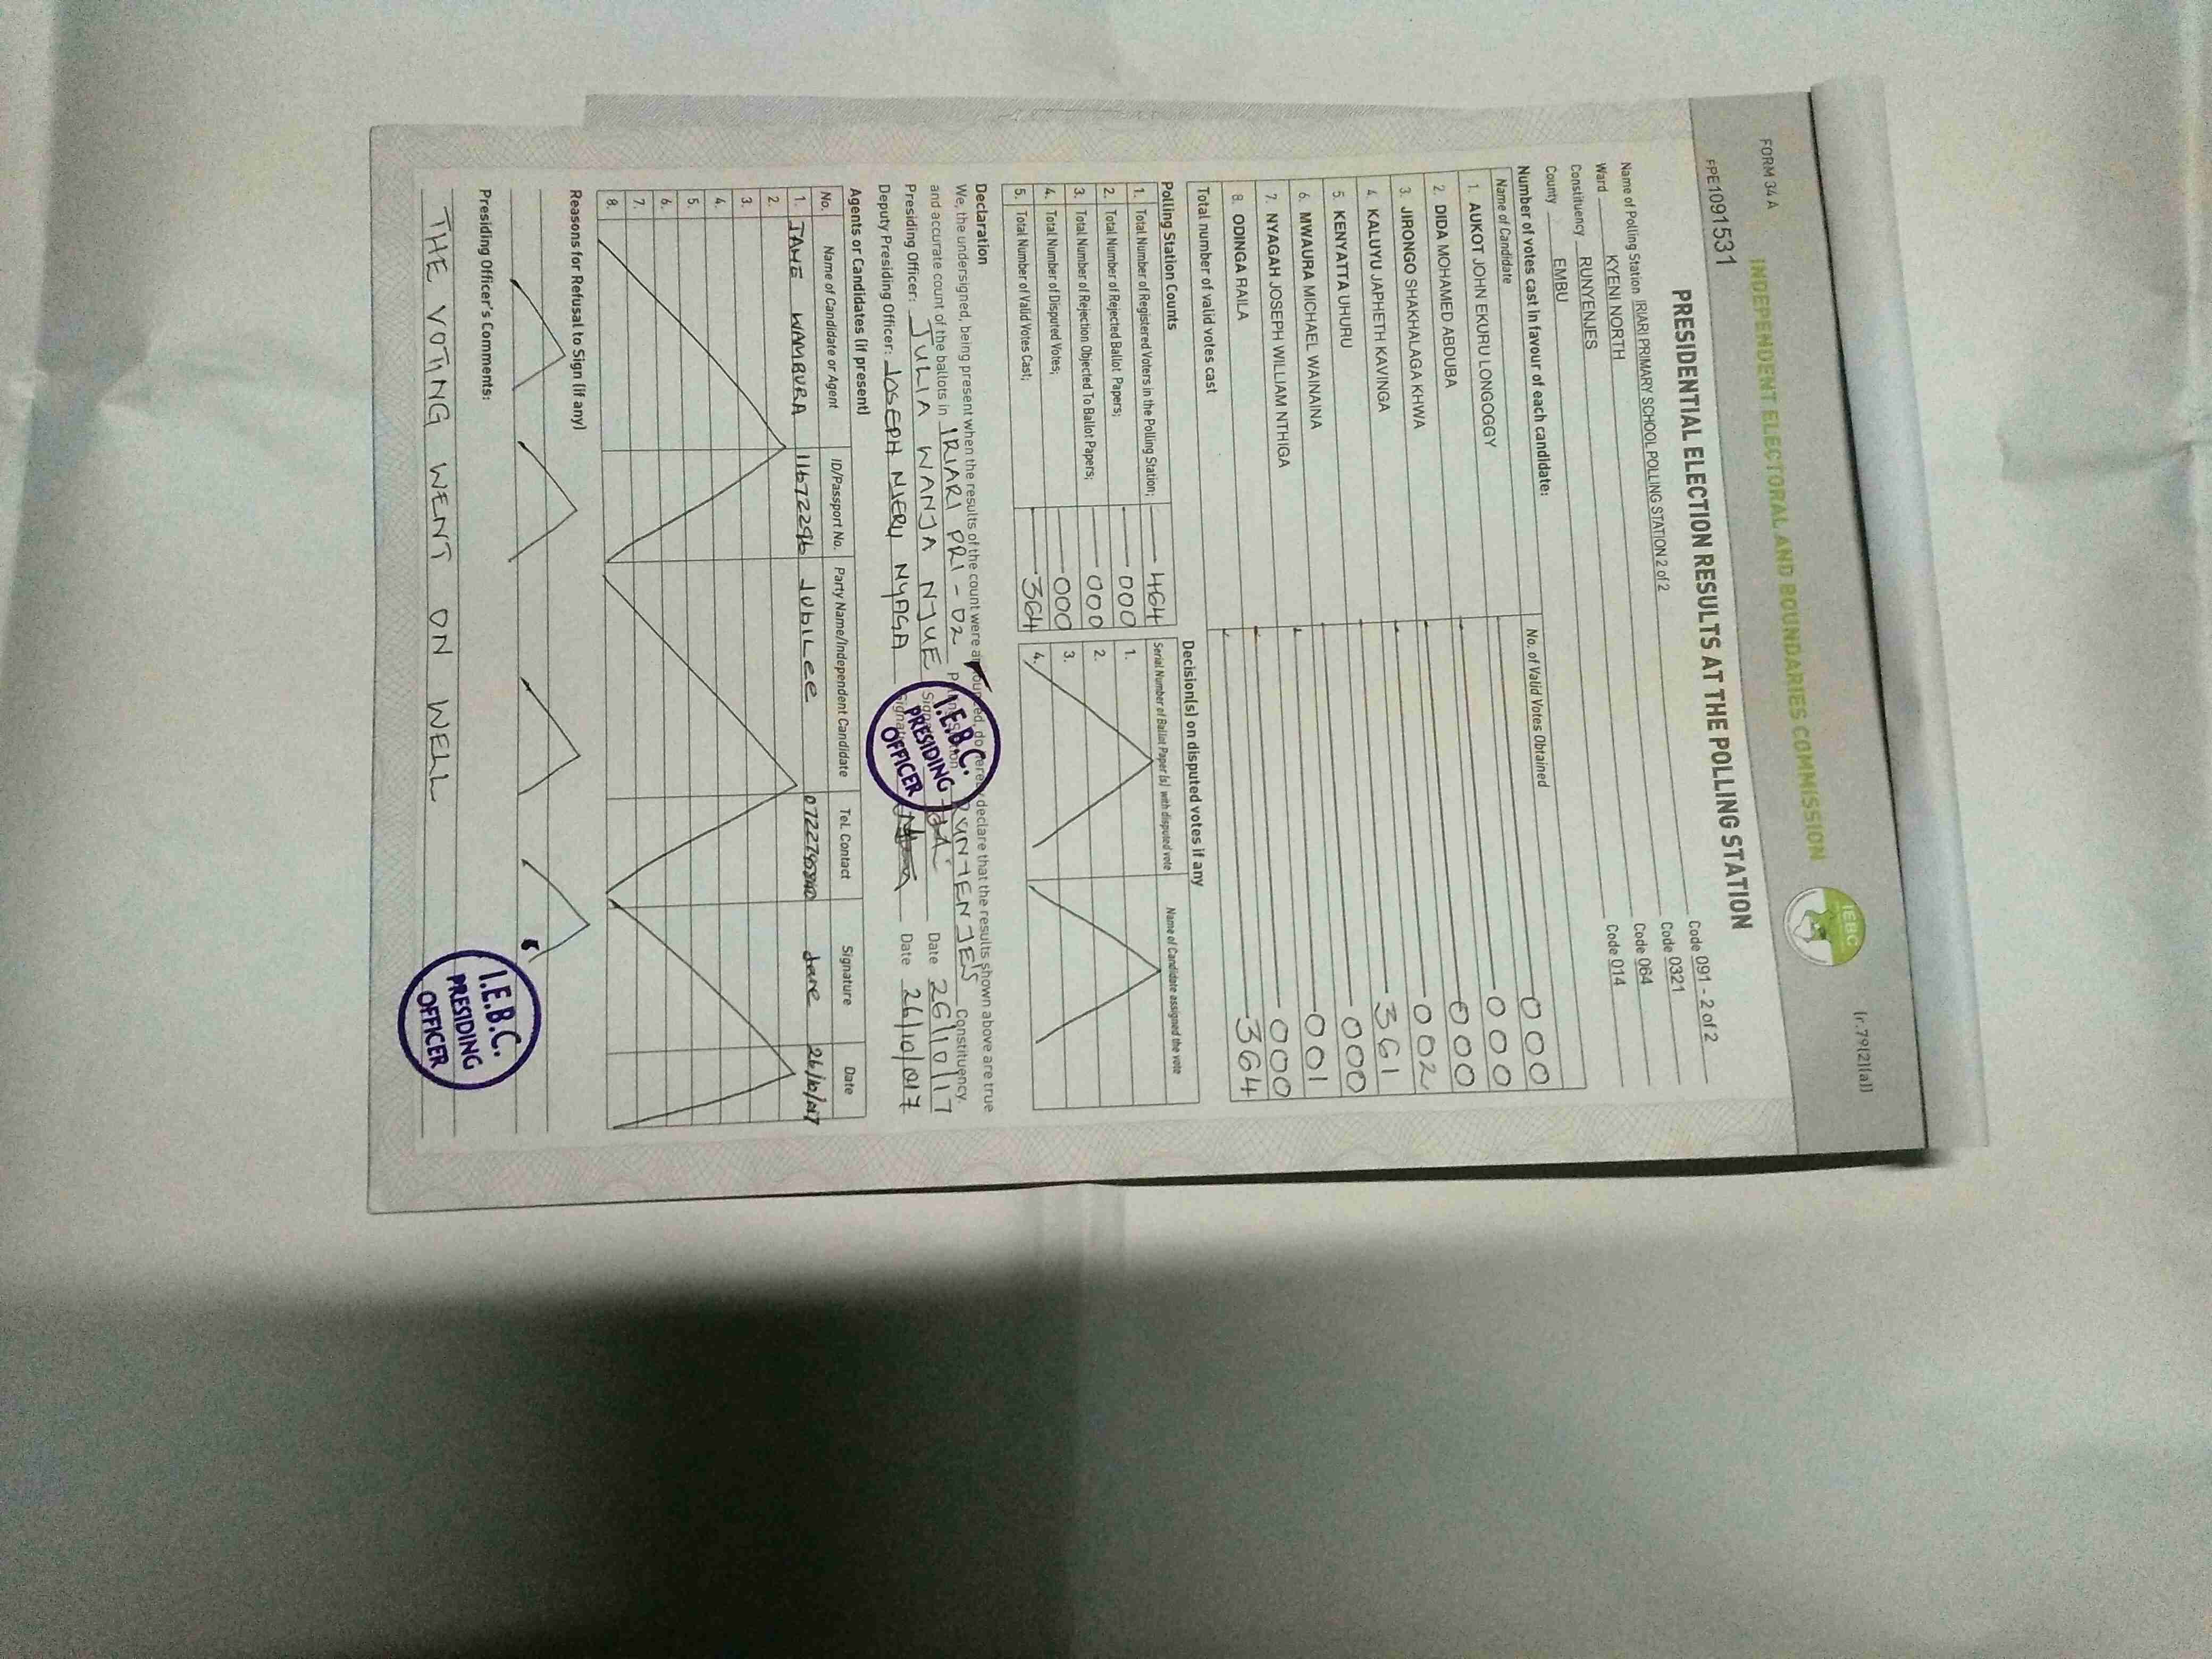 FORM 34 A
(r.79(2)(a))
INDEPENDENT ELECTORAL AND BOUNDARIES COMMISSION
IEBC
FPE1091531
PRESIDENTIAL ELECTION RESULTS AT THE POLLING STATION
Name of Polling Station IRIARI PRIMARY SCHOOL POLLING STATION 2 of 2 Code 091 - 2 of 2
Ward KYENI NORTH Code 0321
Constituency RUNYENJES Code 064
County EMBU Code 014
Number of votes cast in favour of each candidate:
Name of Candidate No. of Valid Votes Obtained
1. AUKOT JOHN EKURU LONGOGGY 000
2. DIDA MOHAMED ABDUBA 000
3. JIRONGO SHAKHALAGA KHWA 000
4. KALUYU JAPHETH KAVINGA 002
5. KENYATTA UHURU 361
6. MWAURA MICHAEL WAINAINA 000
7. NYAGAH JOSEPH WILLIAM NTHIGA 001
8. ODINGA RAILA 000
Total number of valid votes cast 364
Polling Station Counts
1. Total Number of Registered Voters in the Polling Station; 464
2. Total Number of Rejected Ballot Papers; 000
3. Total Number of Rejection Objected To Ballot Papers; 000
4. Total Number of Disputed Votes; 000
5. Total Number of Valid Votes Cast; 364
Decision(s) on disputed votes if any
Serial Number of Ballot Paper (s) with disputed vote Name of Candidate assigned the vote
1.
2.
3.
4.
Declaration
We, the undersigned, being present when the results of the count were announced, do hereby declare that the results shown above are true
and accurate count of the ballots in IRIARI PRI - 02 Polling Station RUNYENJES Constituency.
Presiding Officer: JULIA WANJA NJUE Signature Date 26/10/17
Deputy Presiding Officer: JOSEPH NJERU NYAGA Signature Date 26/10/017
I.E.B.C.
PRESIDING
OFFICER
Agents or Candidates (if present)
No. Name of Candidate or Agent ID/Passport No. Party Name/Independent Candidate Tel. Contact Signature Date
1. JANE WAMBURA 11672296 Jubilee Jane
2.
3.
4.
5.
6.
7.
8.
Reasons for Refusal to Sign (if any)
Presiding Officer's Comments:
THE VOTING WENT ON WELL
I.E.B.C.
PRESIDING
OFFICER